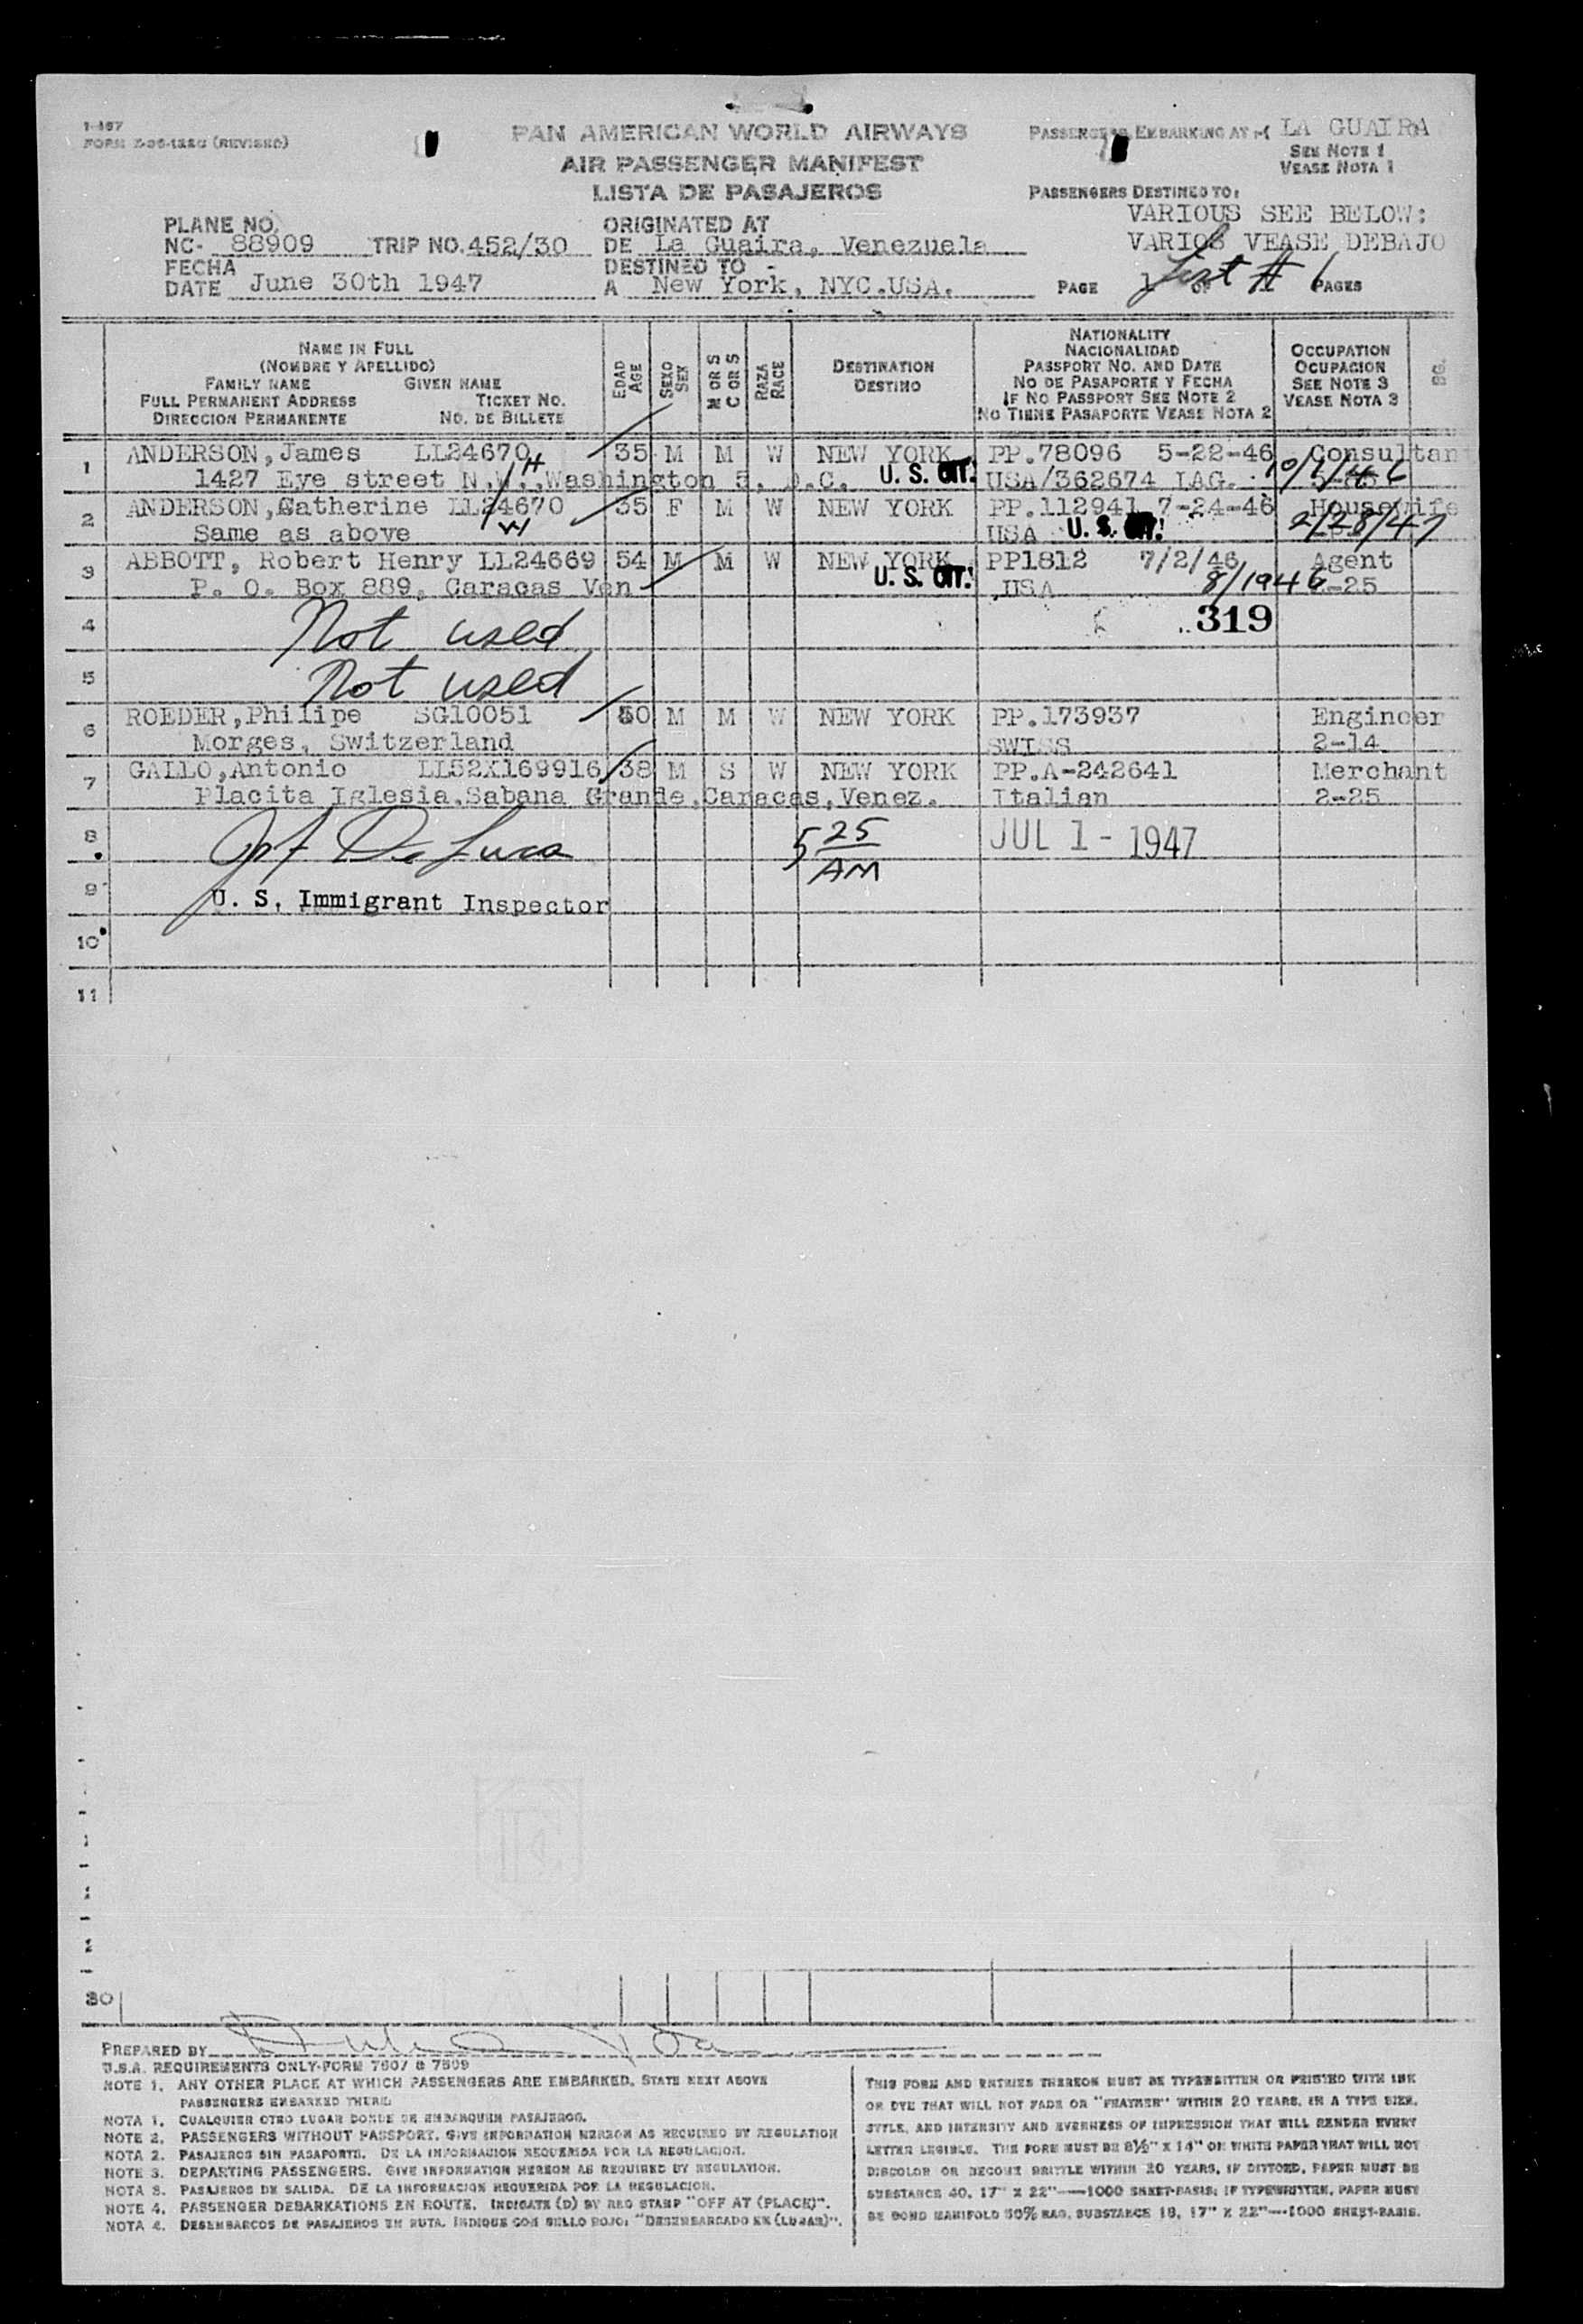 1-467
FORM (REVISED)
PAN AMERICAN WORLD AIRWAYS
AIR PASSENGER MANIFEST
LISTA DE PASAJEROS
PASSENGERS EMBARKING AT LA GUAIRA
SEE NOTE 1
VEASE NOTA 1
PASSENGERS DESTINED TO:
VARIOUS SEE BELOW:
VARIOS VEASE DEBAJO
PLANE NO.
NC- 88909 TRIP NO. 452/30
ORIGINATED AT
DE La Guaira, Venezuela
FECHA
DATE June 30th 1947
DESTINED TO -
A New York, NYC.USA.
PAGE 1 OF PAGES
List # 6
NAME IN FULL
(NOMBRE Y APELLIDO)
FAMILY NAME GIVEN NAME
FULL PERMANENT ADDRESS TICKET NO.
DIRECCION PERMANENTE NO. DE BILLETE
EDAD AGE
SEXO SEX
M OR S C OR S
RAZA RACE
DESTINATION
DESTINO
NATIONALITY
NACIONALIDAD
PASSPORT NO. AND DATE
NO DE PASAPORTE Y FECHA
IF NO PASSPORT SEE NOTE 2
NO TIENE PASAPORTE VEASE NOTA 2
OCCUPATION
OCUPACION
SEE NOTE 3
VEASE NOTA 3
1 ANDERSON,James LL24670 35 M M W NEW YORK PP.78096 5-22-46 Consultan
1427 Eye street N.W.,Washington 5, D.C. U.S. CIT. USA/362674 LAG. 10/1/46
H
2 ANDERSON,Catherine LL24670 35 F M W NEW YORK PP.112941 7-24-46 Housewife
Same as above W USA U.S. CIT. 2/28/47
3 ABBOTT, Robert Henry LL24669 54 M M W NEW YORK PP1812 7/2/46 Agent
P. O. Box 889, Caracas Ven U.S. CIT. USA 8/1946 -25
4 Not used 319
5 Not used
6 ROEDER,Philipe SG10051 50 M M W NEW YORK PP.173937 Engineer
Morges, Switzerland SWISS 2-14
7 GALLO,Antonio LL52X169916 38 M S W NEW YORK PP.A-242641 Merchant
Placita Iglesia,Sabana Grande,Caracas,Venez. Italian 2-25
8 De Luca 5 25 AM JUL 1 - 1947
9 U. S. Immigrant Inspector
10
11
30
PREPARED BY
U.S.A. REQUIREMENTS ONLY-FORM 7507 & 7509
NOTE 1. ANY OTHER PLACE AT WHICH PASSENGERS ARE EMBARKED, STATE NEXT ABOVE
PASSENGERS EMBARKED THERE
NOTA 1. CUALQUIER OTRO LUGAR DONDE SE EMBARQUEN PASAJEROS.
NOTE 2. PASSENGERS WITHOUT PASSPORT. GIVE INFORMATION HEREON AS REQUIRED BY REGULATION
NOTA 2. PASAJEROS SIN PASAPORTE. DE LA INFORMACION REQUERIDA POR LA REGULACION.
NOTE 3. DEPARTING PASSENGERS. GIVE INFORMATION HEREON AS REQUIRED BY REGULATION.
NOTA 3. PASAJEROS DE SALIDA. DE LA INFORMACION REQUERIDA POR LA REGULACION.
NOTE 4. PASSENGER DEBARKATIONS EN ROUTE. INDICATE (D) BY RED STAMP "OFF AT (PLACE)".
NOTA 4. DESEMBARCOS DE PASAJEROS EN RUTA. INDIQUE CON SELLO ROJO: "DESEMBARCADO EN (LUGAR)".
THIS FORM AND ENTRIES THEREON MUST BE TYPEWRITTEN OR PRINTED WITH INK
OR DYE THAT WILL NOT FADE OR "FEATHER" WITHIN 20 YEARS, IN A TYPE SIZE,
STYLE, AND INTENSITY AND EVENNESS OF IMPRESSION THAT WILL RENDER EVERY
LETTER LEGIBLE. THE FORM MUST BE 8½" X 14" ON WHITE PAPER THAT WILL NOT
DISCOLOR OR BECOME BRITTLE WITHIN 20 YEARS, IF DITTOED, PAPER MUST BE
SUBSTANCE 40, 17" X 22"—1000 SHEET-BASIS; IF TYPEWRITTEN, PAPER MUST
BE BOND MANIFOLD 50% RAG, SUBSTANCE 18, 17" X 22"—1000 SHEET-BASIS.